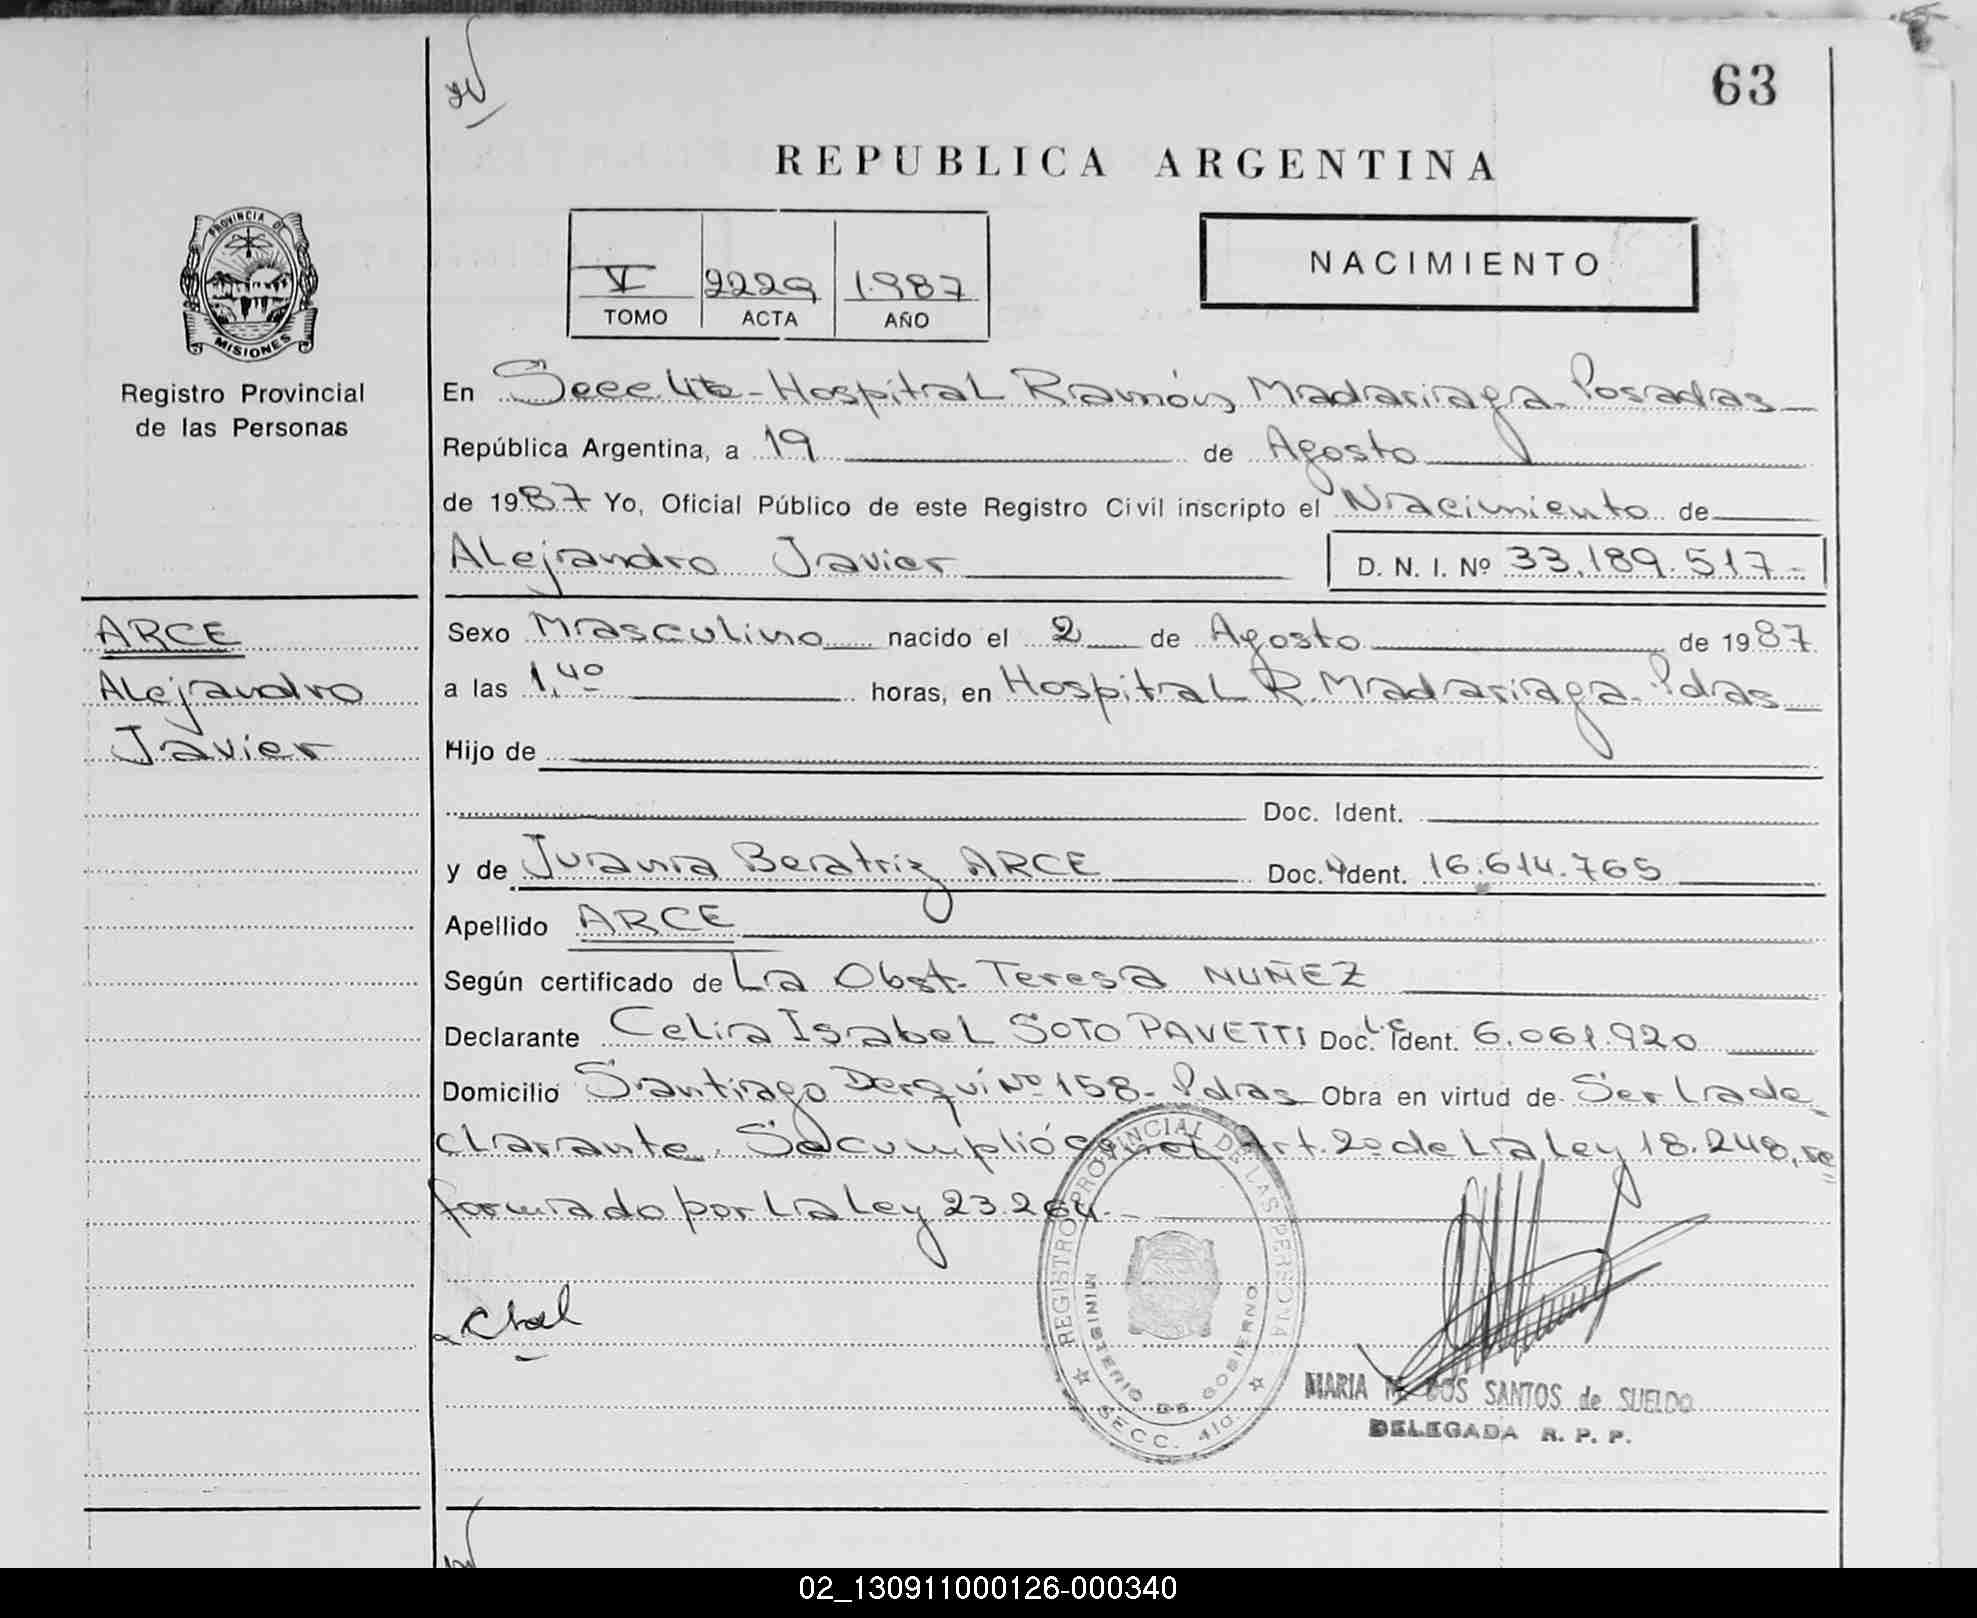 63
REPUBLICA ARGENTINA
PROVINCIA DE
MISIONES
Registro Provincial
de las Personas
V 2229 1987
TOMO ACTA AÑO
NACIMIENTO
En Secc 4ta - Hospital Ramón Madariaga - Posadas
República Argentina, a 19 de Agosto
de 1987 Yo, Oficial Público de este Registro Civil inscripto el Nacimiento de
Alejandro Javier D. N. I. Nº 33.189.517-
ARCE
Alejandro
Javier
Sexo Masculino nacido el 2 de Agosto de 1987
a las 1,40 horas, en Hospital R. Madariaga - Pdas
Hijo de
Doc. Ident.
y de Juana Beatriz ARCE Doc. Ident. 16.614.765
Apellido ARCE
Según certificado de La Obst. Teresa NUÑEZ
Declarante Celia Isabel SOTO PAVETTI Doc. L.C. Ident. 6.061.920
Domicilio Santiago Derqui Nº 158 - Pdas Obra en virtud de Ser la de-
clarante. Se cumplió con el Art. 2º de la ley 18.248, re=
formado por la ley 23.264.-
REGISTRO PROVINCIAL DE LAS PERSONAS
MINISTERIO DE GOBIERNO
SECC. 4ta.
MARIA DOS SANTOS de SUELDO
DELEGADA R. P. P.
02_130911000126-000340